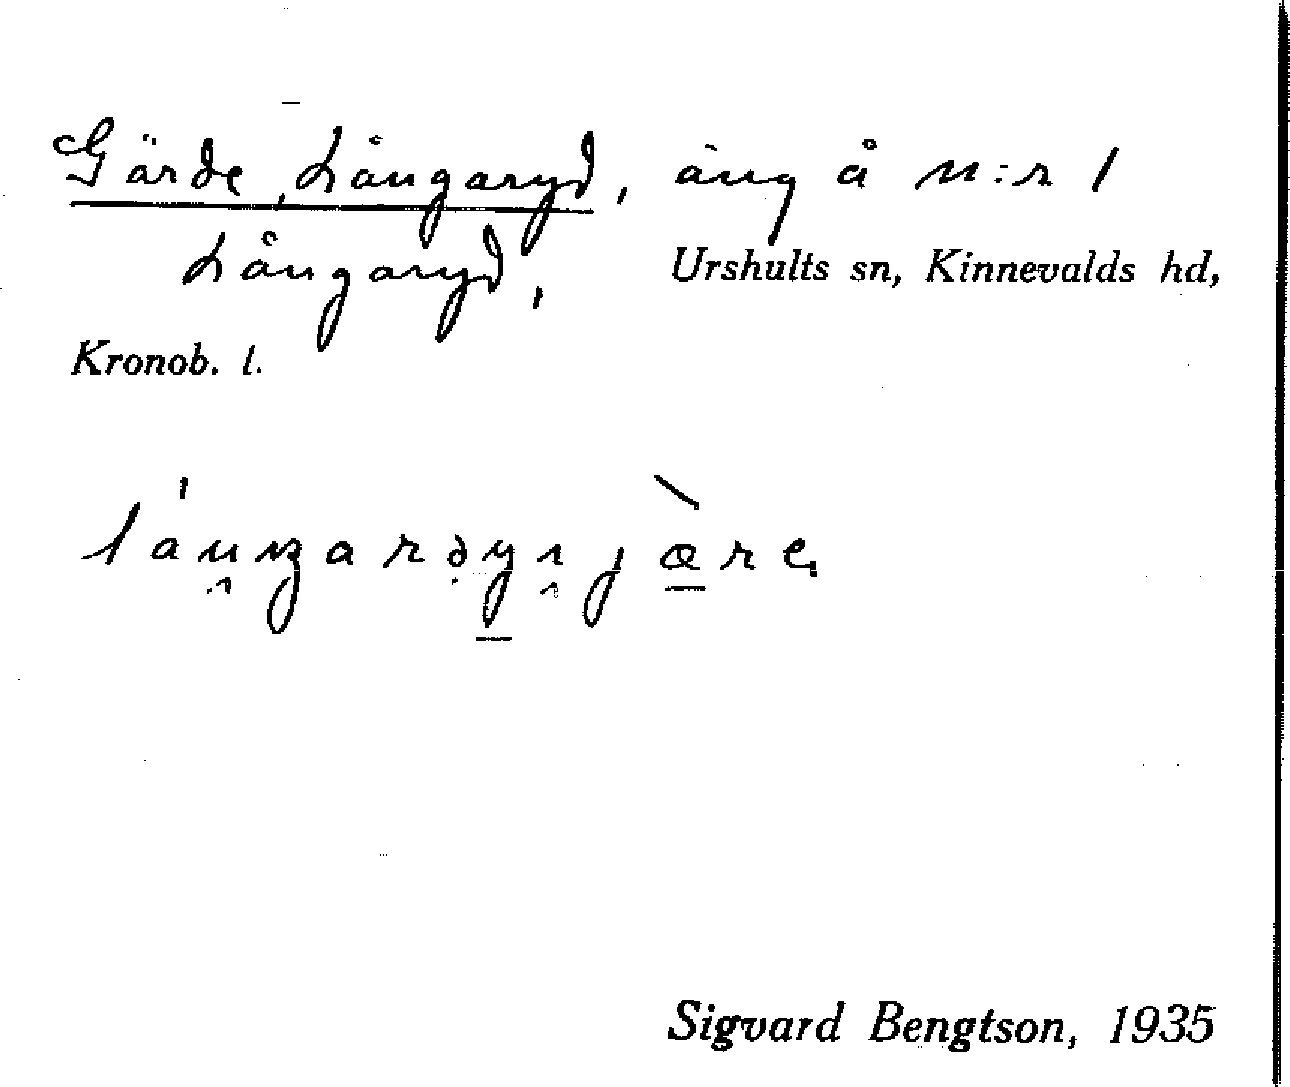 Gärde, Långaryd, äng å n:r 1
Långaryd, Urshults sn, Kinnevalds hd,
Kronob. l.
Sigvard Bengtson, 1935